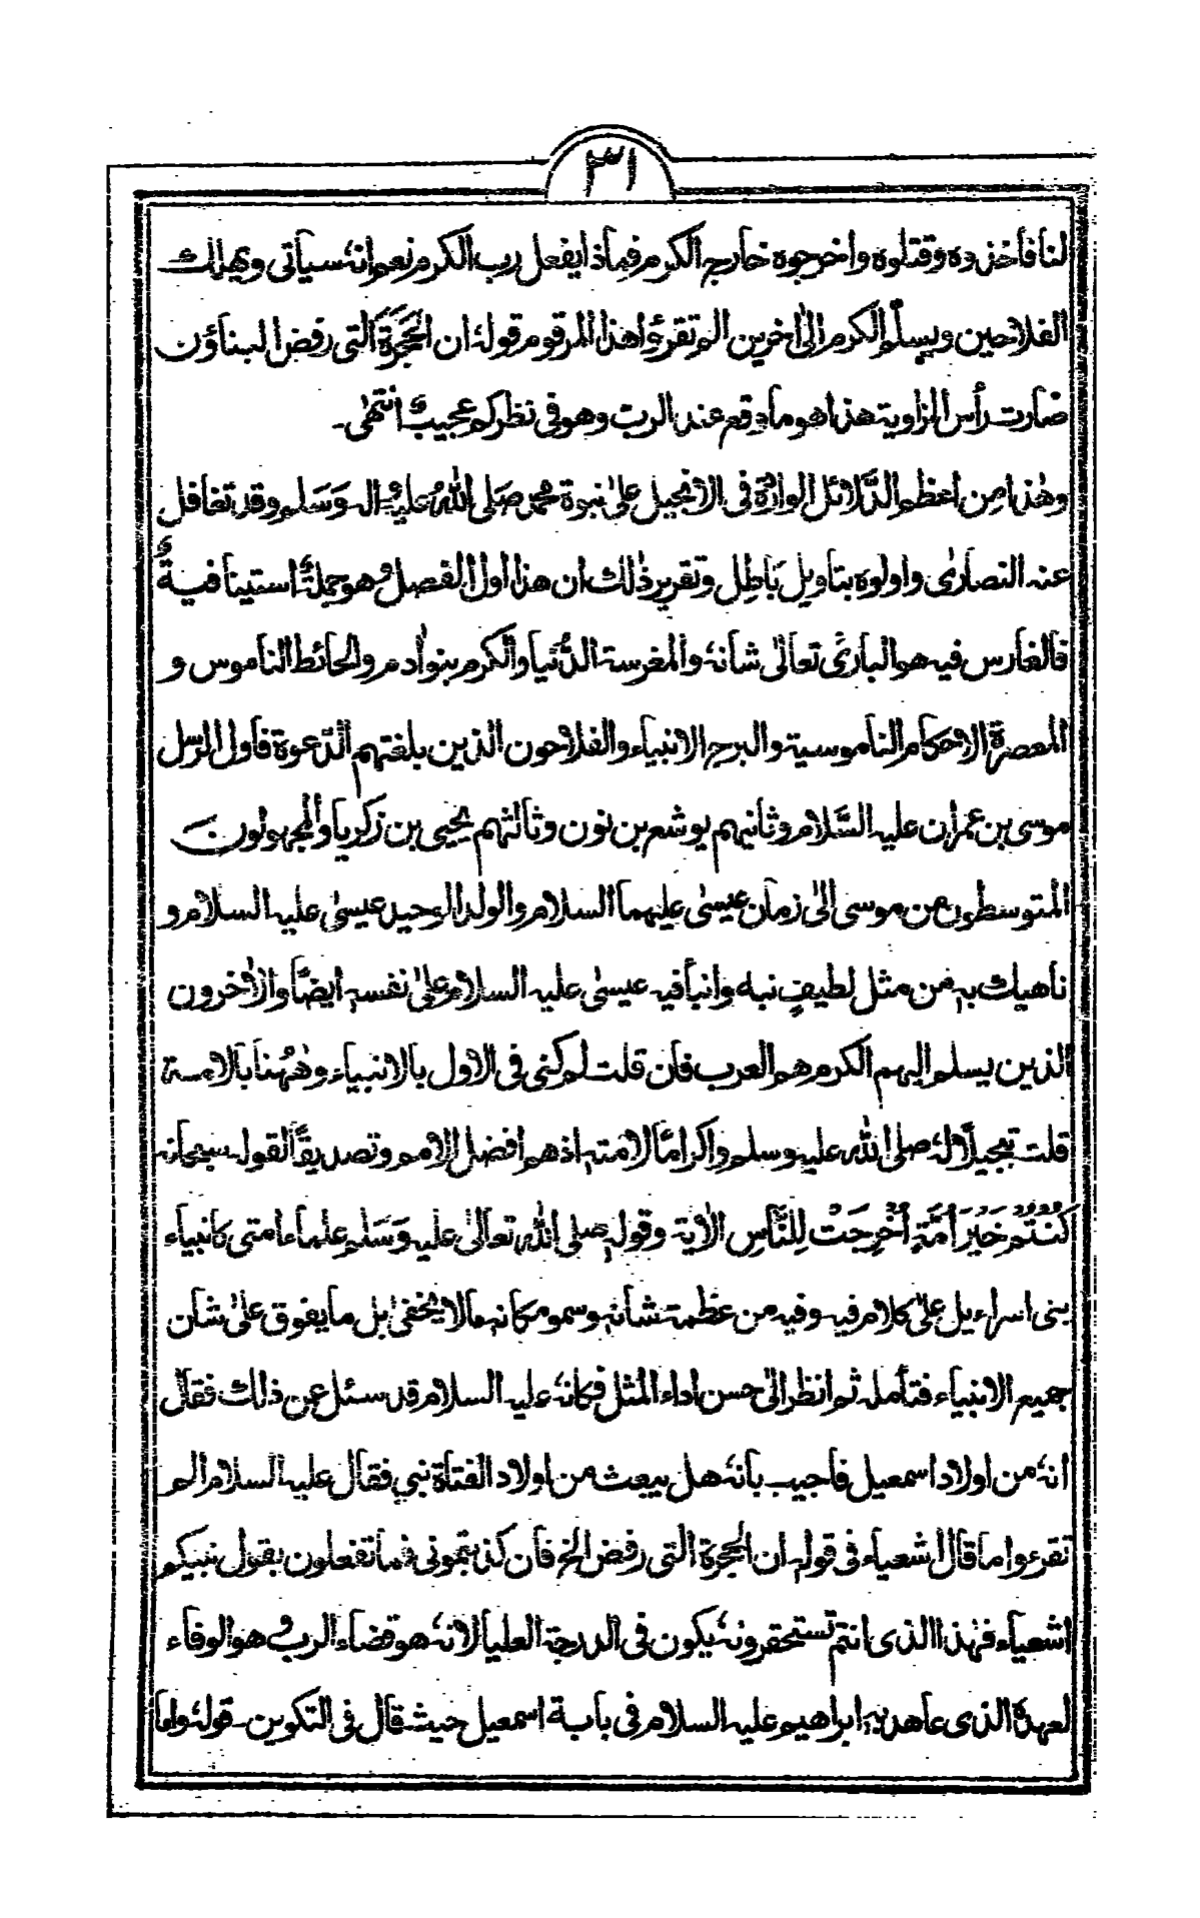 ٣١
لنا فأخذوه وقتلوه واخرجوه خارج الكرم فماذا يفعل رب الكرم نعم انهٗ سيأتى ويهلك
الفلاحين ويسلّم الكرم الىٰ اٰخرين الم تقرؤا هذا المرقوم قولهٗ ان الحَجَرَةَ التى رفض البناؤن
صارت رأس الزاوية هذا هو ما وقع عند الرب وهو فى نظركم عجيبٌ انتهىٰ۔
وهٰذا مِن اعظم الدَّلائل الواردة فى الانجيل علىٰ نبوة محمد صَلى اللّٰهُ عليهِ وسَلم وقد تغافل
عنه النصارىٰ واولوه بتاويل بَاطِل وتقرير ذٰلك ان هذا اول الفصل وهو جملةٌ استينافيةٌ
فالغارس فيه هو البارئ تعالىٰ شانهٗ والمغرسة الدُّنيا والكرم بنو اٰدم والحائط الناموس و
المعصرة الاحكام الناموسية والبرج الانبياء والفلاحون الذين بلغتهم الدّعوة فاول الرسل
موسى بن عمران عليه السَّلام وثانيهم يوشع بن نون وثالثهم يحيى بن زكريا والمجهولون
المتوسطون من موسى الىٰ زمان عيسىٰ عليهما السلام والولد الوحيد عيسىٰ عليه السلام و
ناهيك به من مثل لطيفٍ نبه وانبأ فيه عيسىٰ عليه السلام علىٰ نفسه ايضًا والاٰخرون
الذين يسلم اليهم الكرم هم العرب فان قلت لم كنى فى الاول بالانبياء وهٰهُنا بالامة
قلت تبجيلًا لهٗ صلى اللّٰه عليه وسلم واكرامًا لامته اذهم افضل الامم وتصديقًا لقوله سبحانه
كُنْتُمْ خَيْرَ اُمَّةٍ اُخْرِجَتْ لِلنَّاسِ الاٰية وقوله صلى اللّٰه تعالىٰ عليه وَسَلم علماء امتى كانبياء
بنى اسراءيل علىٰ كلام فيه وفيه من عظمة شانه وسمو مكانه مالا يخفىٰ بل ما يفوق علىٰ شان
جميع الانبياء فتأمله ثم انظر الىٰ حسن اداء المثل فكانهٗ عليه السلام قد سئل عن ذلك فقال
انهٗ من اولاد اسمعيل فاجيب بانهٗ هل يبعث من اولاد الفتاة نبى فقال عليه السلام الم
تقرءوا ما قال اشعياء فى قوله ان الحجرة التى رفض الخ فان كذبتمونى فما تفعلون بقول نبيكم
اشعياء فهٰذا الذى انتم تستحقرونهٗ يكون فى الدرجة العليا لانهٗ هو قضاء الرب وهو الوفاء
لعهدة الذى عاهد به ابراهيم عليه السلام فى بابة اسمعيل حيث قال فى التكوين۔ قولهٗ واما